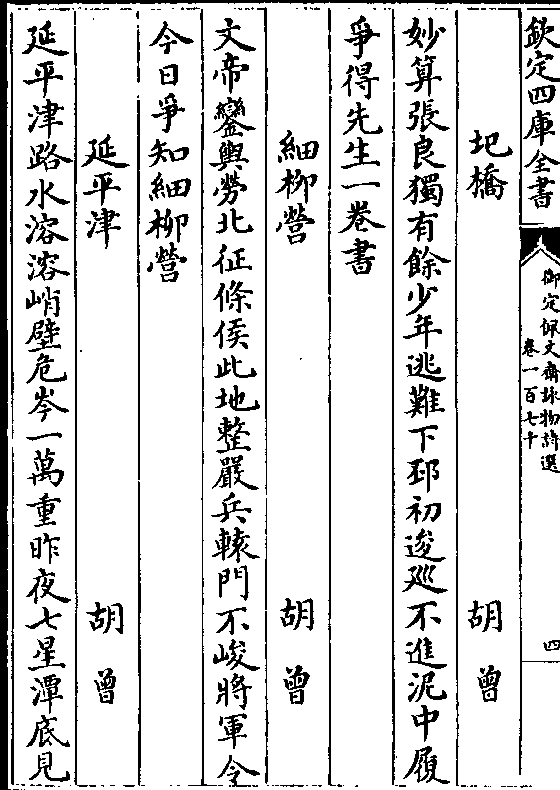 欽定四庫全書
御定佩文齋詠物詩選
卷一百七十
四
圯橋 胡曾
妙算張良獨有餘少年逃難下邳初逡廵不進泥中履
爭得先生一卷書
細柳營 胡曾
文帝鑾輿勞北征條侯此地整嚴兵轅門不峻將軍令
今日爭知細柳營
延平津 胡曾
延平津路水溶溶峭壁危岑一萬重昨夜七星潭底見